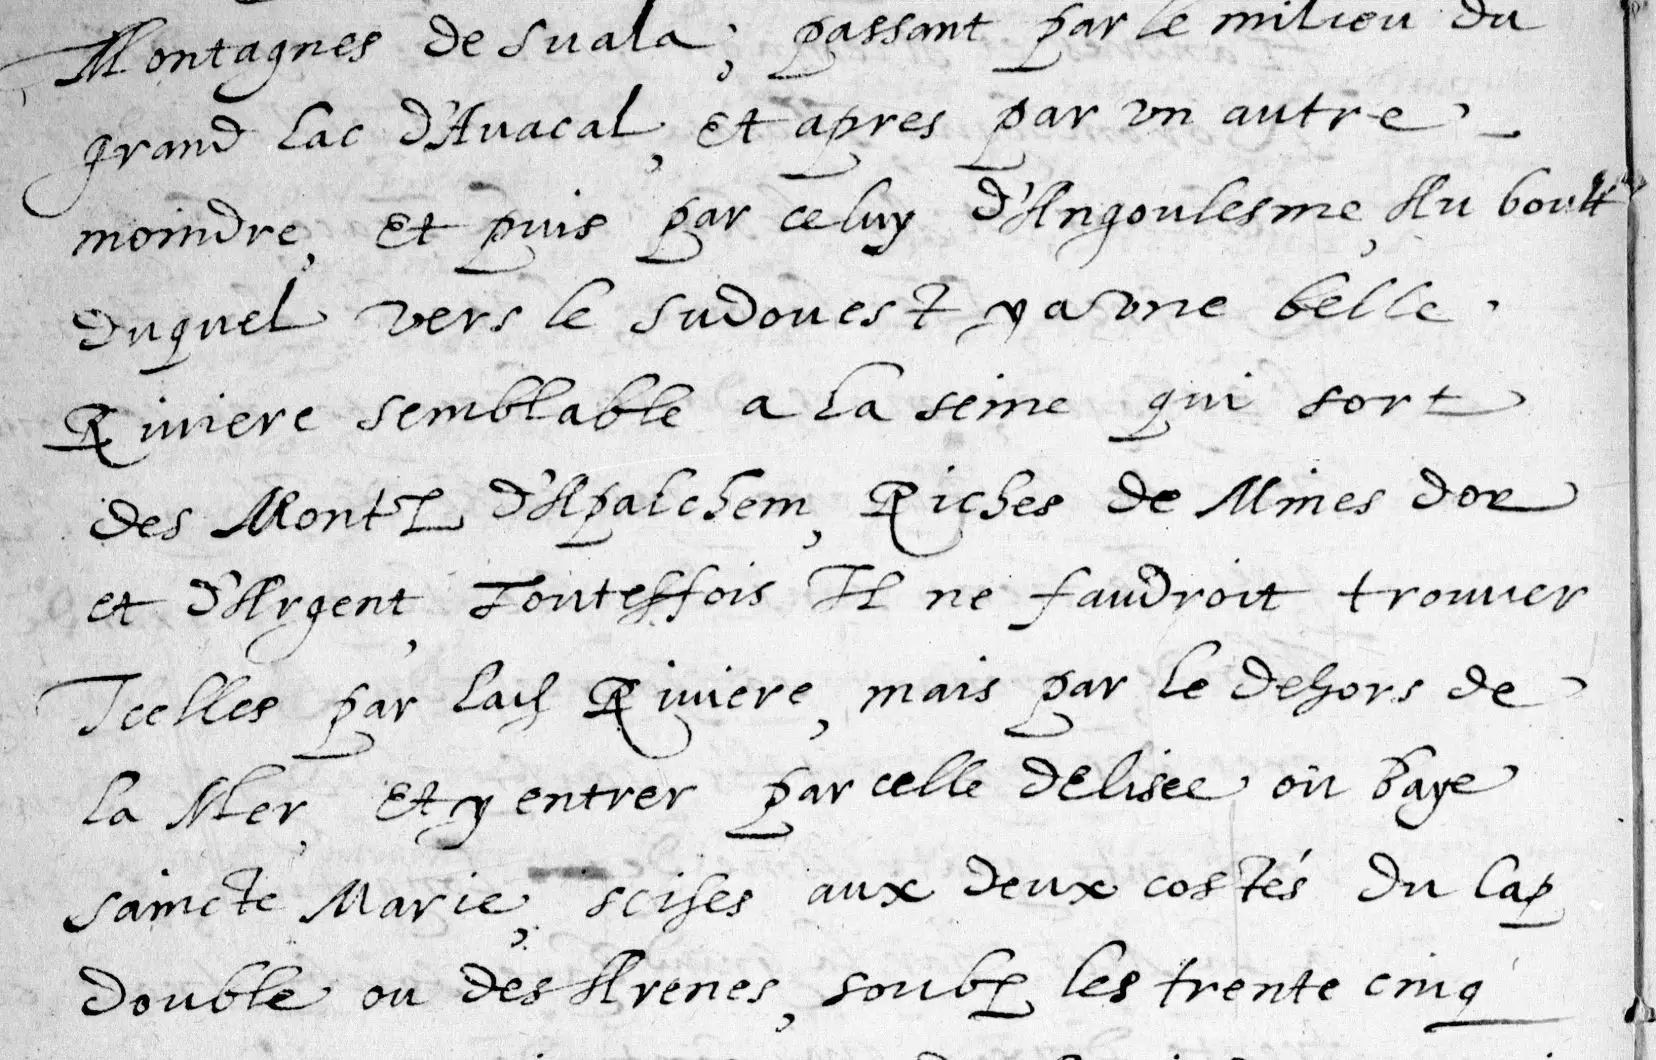 Montagnes de suala, passant par le milieu du
grand Lac d'Auacal, Et apres par vn autre
moindre, Et puis par celuy d'Angoulesme, Au boutt
duquel vers le sudouest y a vne belle
Riuiere semblable a La seine qui sort
des Montz d'Apalchem, Riches de Mines dor
et d'Argent, Toutesfois Il ne faudroit trouuer
Icelles par Riuiere, mais par le dehors de
La Mer, Et y entrer par celle delisee ou Baye
saincte Marie, scises aux deux costés du Cap
double ou des Arenes, soubz les trente cinq